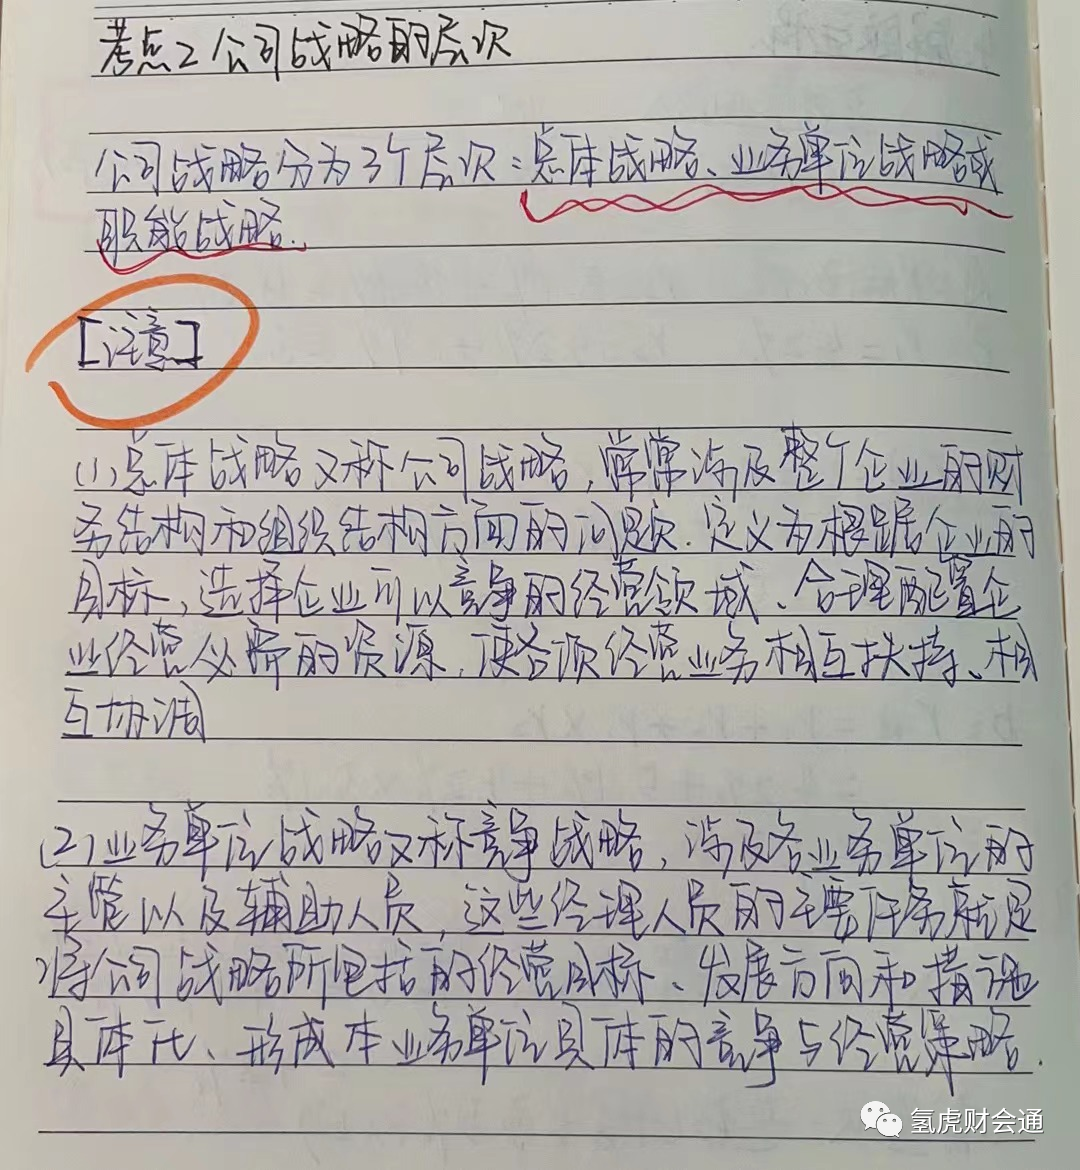 考点2 公司战略的层次
公司战略分为3个层次:总体战略、业务单位战略或
职能战略.
[注意]
(1)总体战略又称公司战略,常常涉及整个企业的财
务结构和组织结构方面的问题.定义为根据企业的
目标,选择企业可以竞争的经营领域、合理配置企
业经营必需的资源,使各项经营业务相互扶持、相
互协调
(2)业务单位战略又称竞争战略,涉及各业务单位的
主管以及辅助人员,这些经理人员的主要任务就是
将公司战略所包括的经营目标、发展方向和措施
具体化、形成本业务单位具体的竞争与经营策略.
氢虎财会通